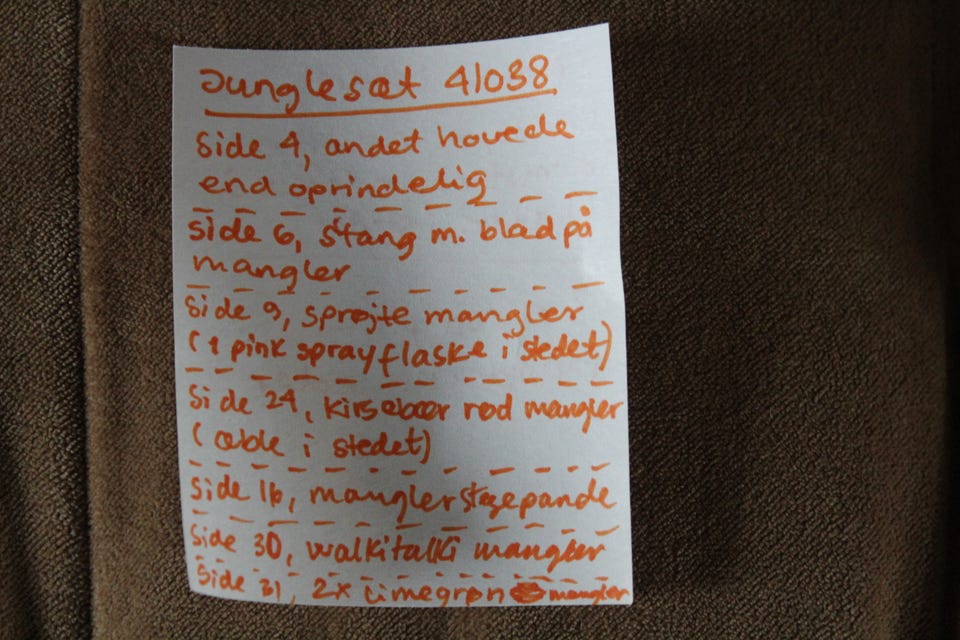 Junglesæt 41038
Side 4, andet hovede
end oprindelig
Side 6, stang m. blad på
mangler
Side 9, sprøjte mangler
(1 pink sprayflaske i stedet)
Side 24, kirsebær rød mangler
(æble i stedet)
Side 16, mangler stegepande
Side 30, walkitalki mangler
Side 31, 2x Limegrøn mangler